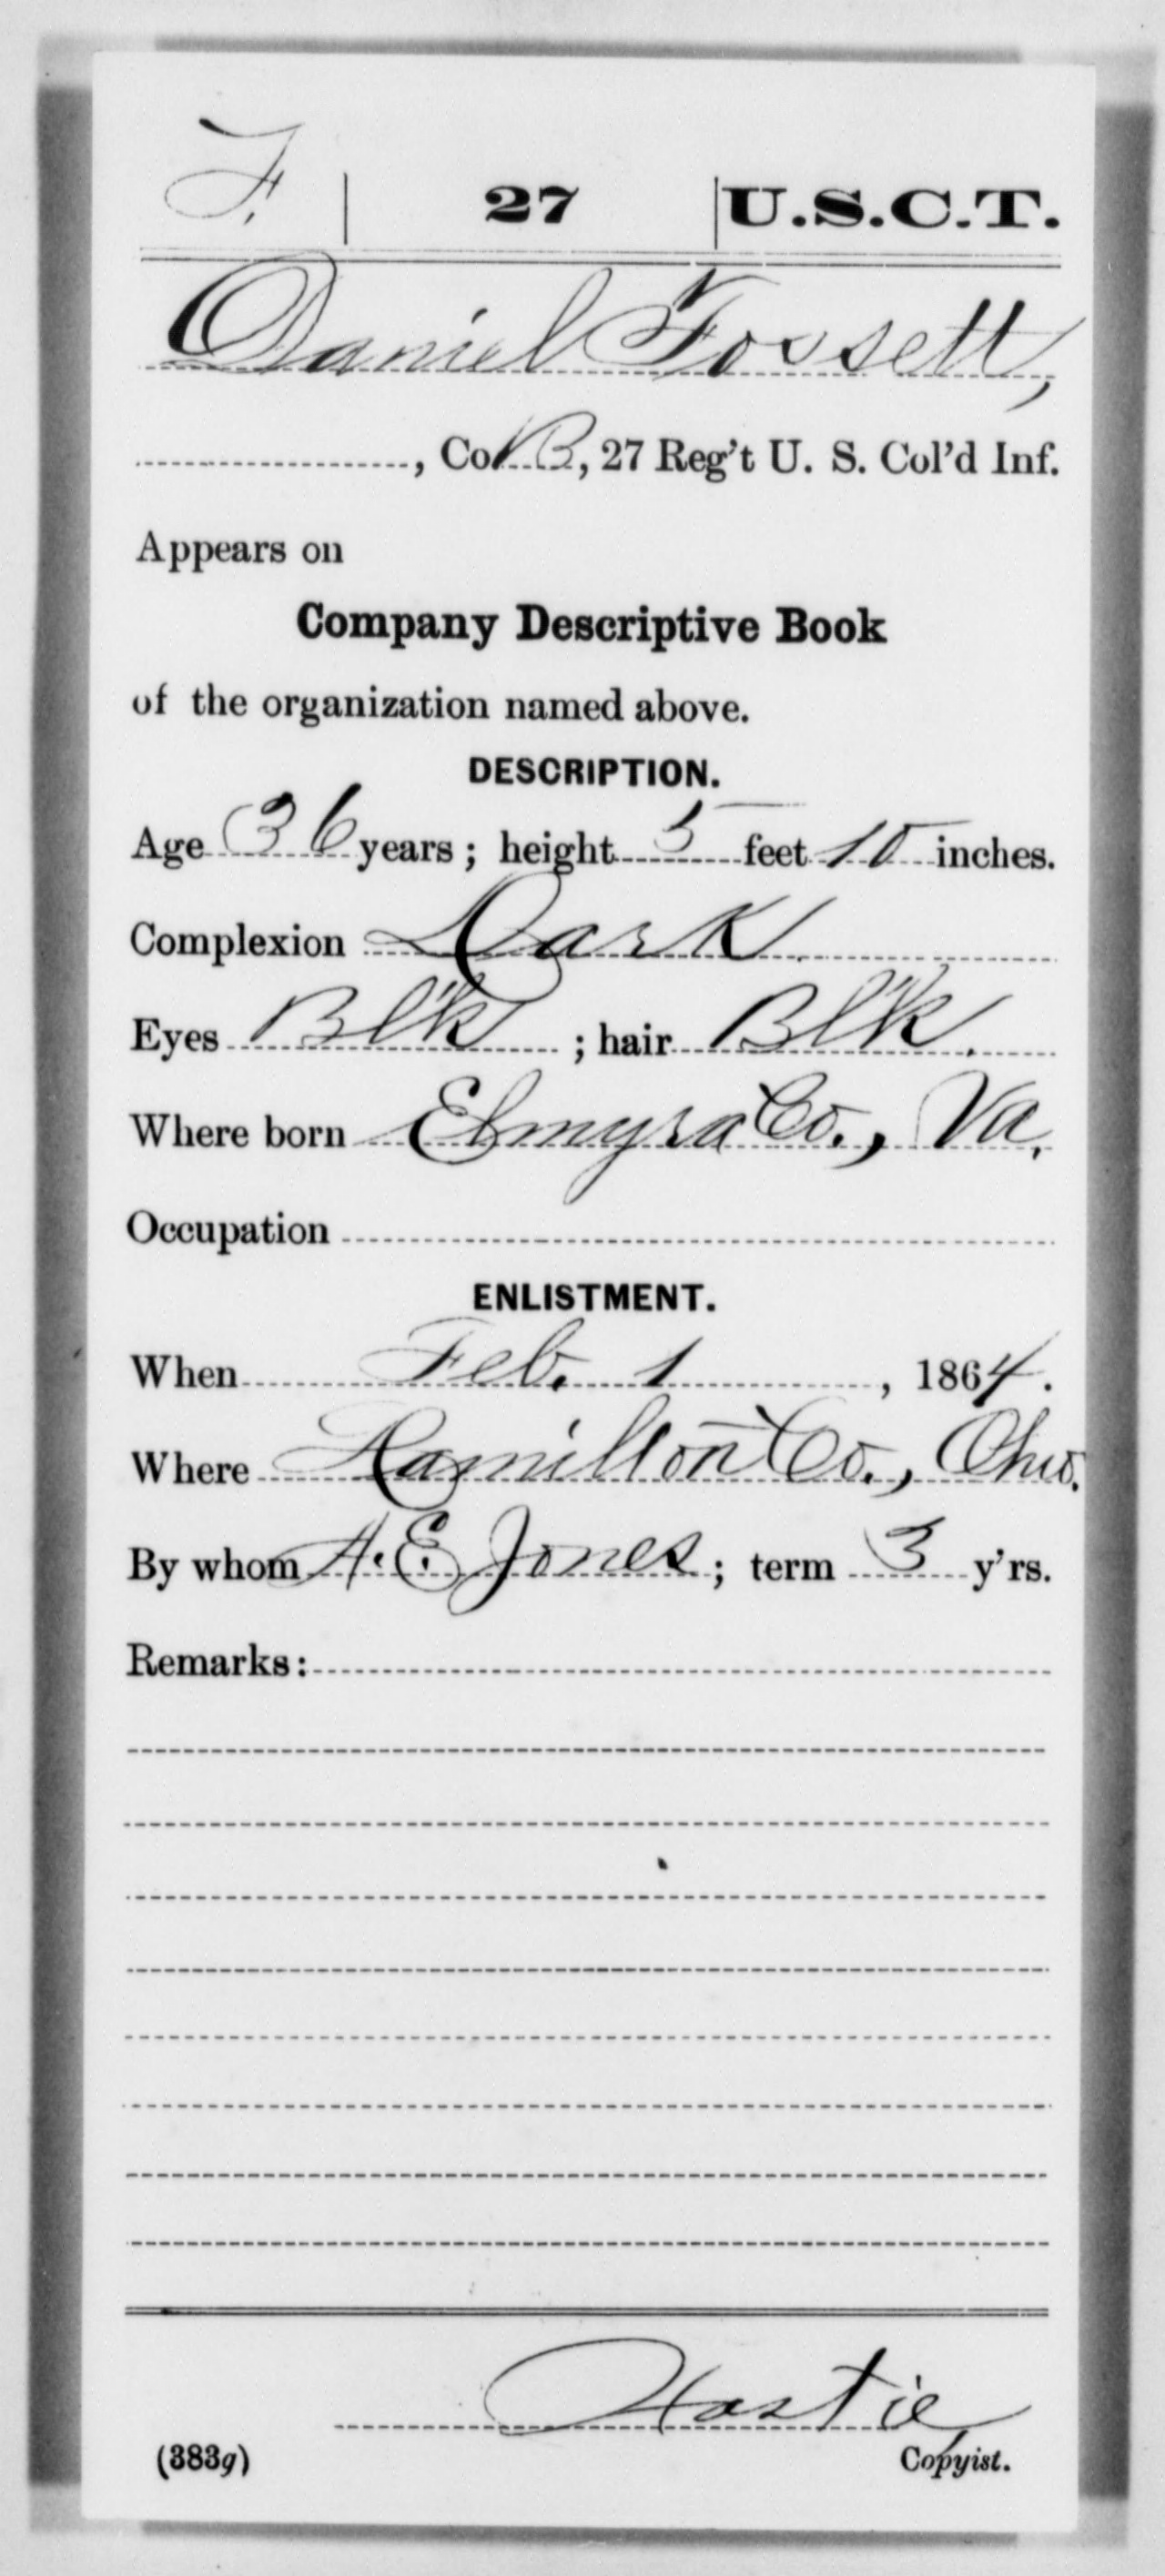 F. | 27 | U.S.C.T.
Daniel Fossett,
, Co. B, 27 Reg't U. S. Col'd Inf.
Appears on
Company Descriptive Book
of the organization named above.
DESCRIPTION.
Age 36 years; height 5 feet 10 inches.
Complexion Dark.
Eyes Bl'k ; hair Bl'k.
Where born Elmyra Co., Va.
Occupation
ENLISTMENT.
When Feb. 1, 1864.
Where Hamilton Co., Ohio.
By whom A. E. Jones; term 3 y'rs.
Remarks:
Hastie
(383g) Copyist.